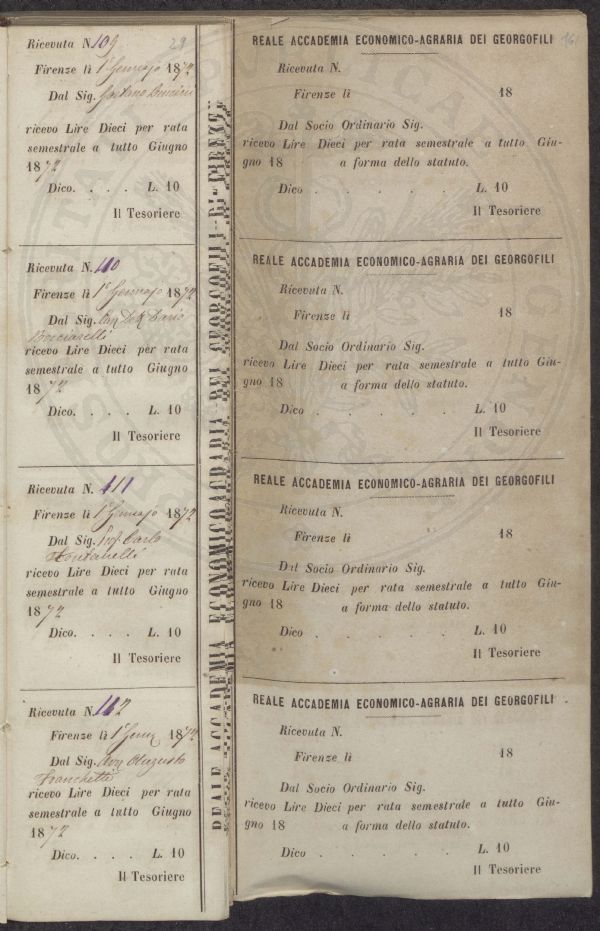 Ricevuta N. 109 29
Firenze lì 1° Gennajo 1872
Dal Sig. Gaetano
ricevo Lire Dieci per rata
semestrale a tutto Giugno
1872
Dico. . . . L. 10
Il Tesoriere
Ricevuta N. 110
Firenze lì 1° Gennajo 1872
Dal Sig. Dario
ricevo Lire Dieci per rata
semestrale a tutto Giugno
1872
Dico. . . . L. 10
Il Tesoriere
Ricevuta N. 111
Firenze lì 1° Gennajo 1872
Dal Sig. Prof. Carlo
Fontanelli
ricevo Lire Dieci per rata
semestrale a tutto Giugno
1872
Dico. . . . L. 10
Il Tesoriere
Ricevuta N. 112
Firenze lì 1° Genn. 1872
Dal Sig. Avv. Augusto
Franchetti
ricevo Lire Dieci per rata
semestrale a tutto Giugno
1872
Dico. . . . L. 10
Il Tesoriere
REALE ACCADEMIA ECONOMICO-AGRARIA DEI GEORGOFILI DI FIRENZE
REALE ACCADEMIA ECONOMICO-AGRARIA DEI GEORGOFILI
Ricevuta N.
Firenze lì 18
Dal Socio Ordinario Sig.
ricevo Lire Dieci per rata semestrale a tutto Giu-
gno 18 a forma dello statuto.
Dico . . . . L. 10
Il Tesoriere
REALE ACCADEMIA ECONOMICO-AGRARIA DEI GEORGOFILI
Ricevuta N.
Firenze lì 18
Dal Socio Ordinario Sig.
ricevo Lire Dieci per rata semestrale a tutto Giu-
gno 18 a forma dello statuto.
Dico . . . . L. 10
Il Tesoriere
REALE ACCADEMIA ECONOMICO-AGRARIA DEI GEORGOFILI
Ricevuta N.
Firenze lì 18
Dal Socio Ordinario Sig.
ricevo Lire Dieci per rata semestrale a tutto Giu-
gno 18 a forma dello statuto.
Dico . . . . L. 10
Il Tesoriere
REALE ACCADEMIA ECONOMICO-AGRARIA DEI GEORGOFILI
Ricevuta N.
Firenze lì 18
Dal Socio Ordinario Sig.
ricevo Lire Dieci per rata semestrale a tutto Giu-
gno 18 a forma dello statuto.
Dico . . . . L. 10
Il Tesoriere